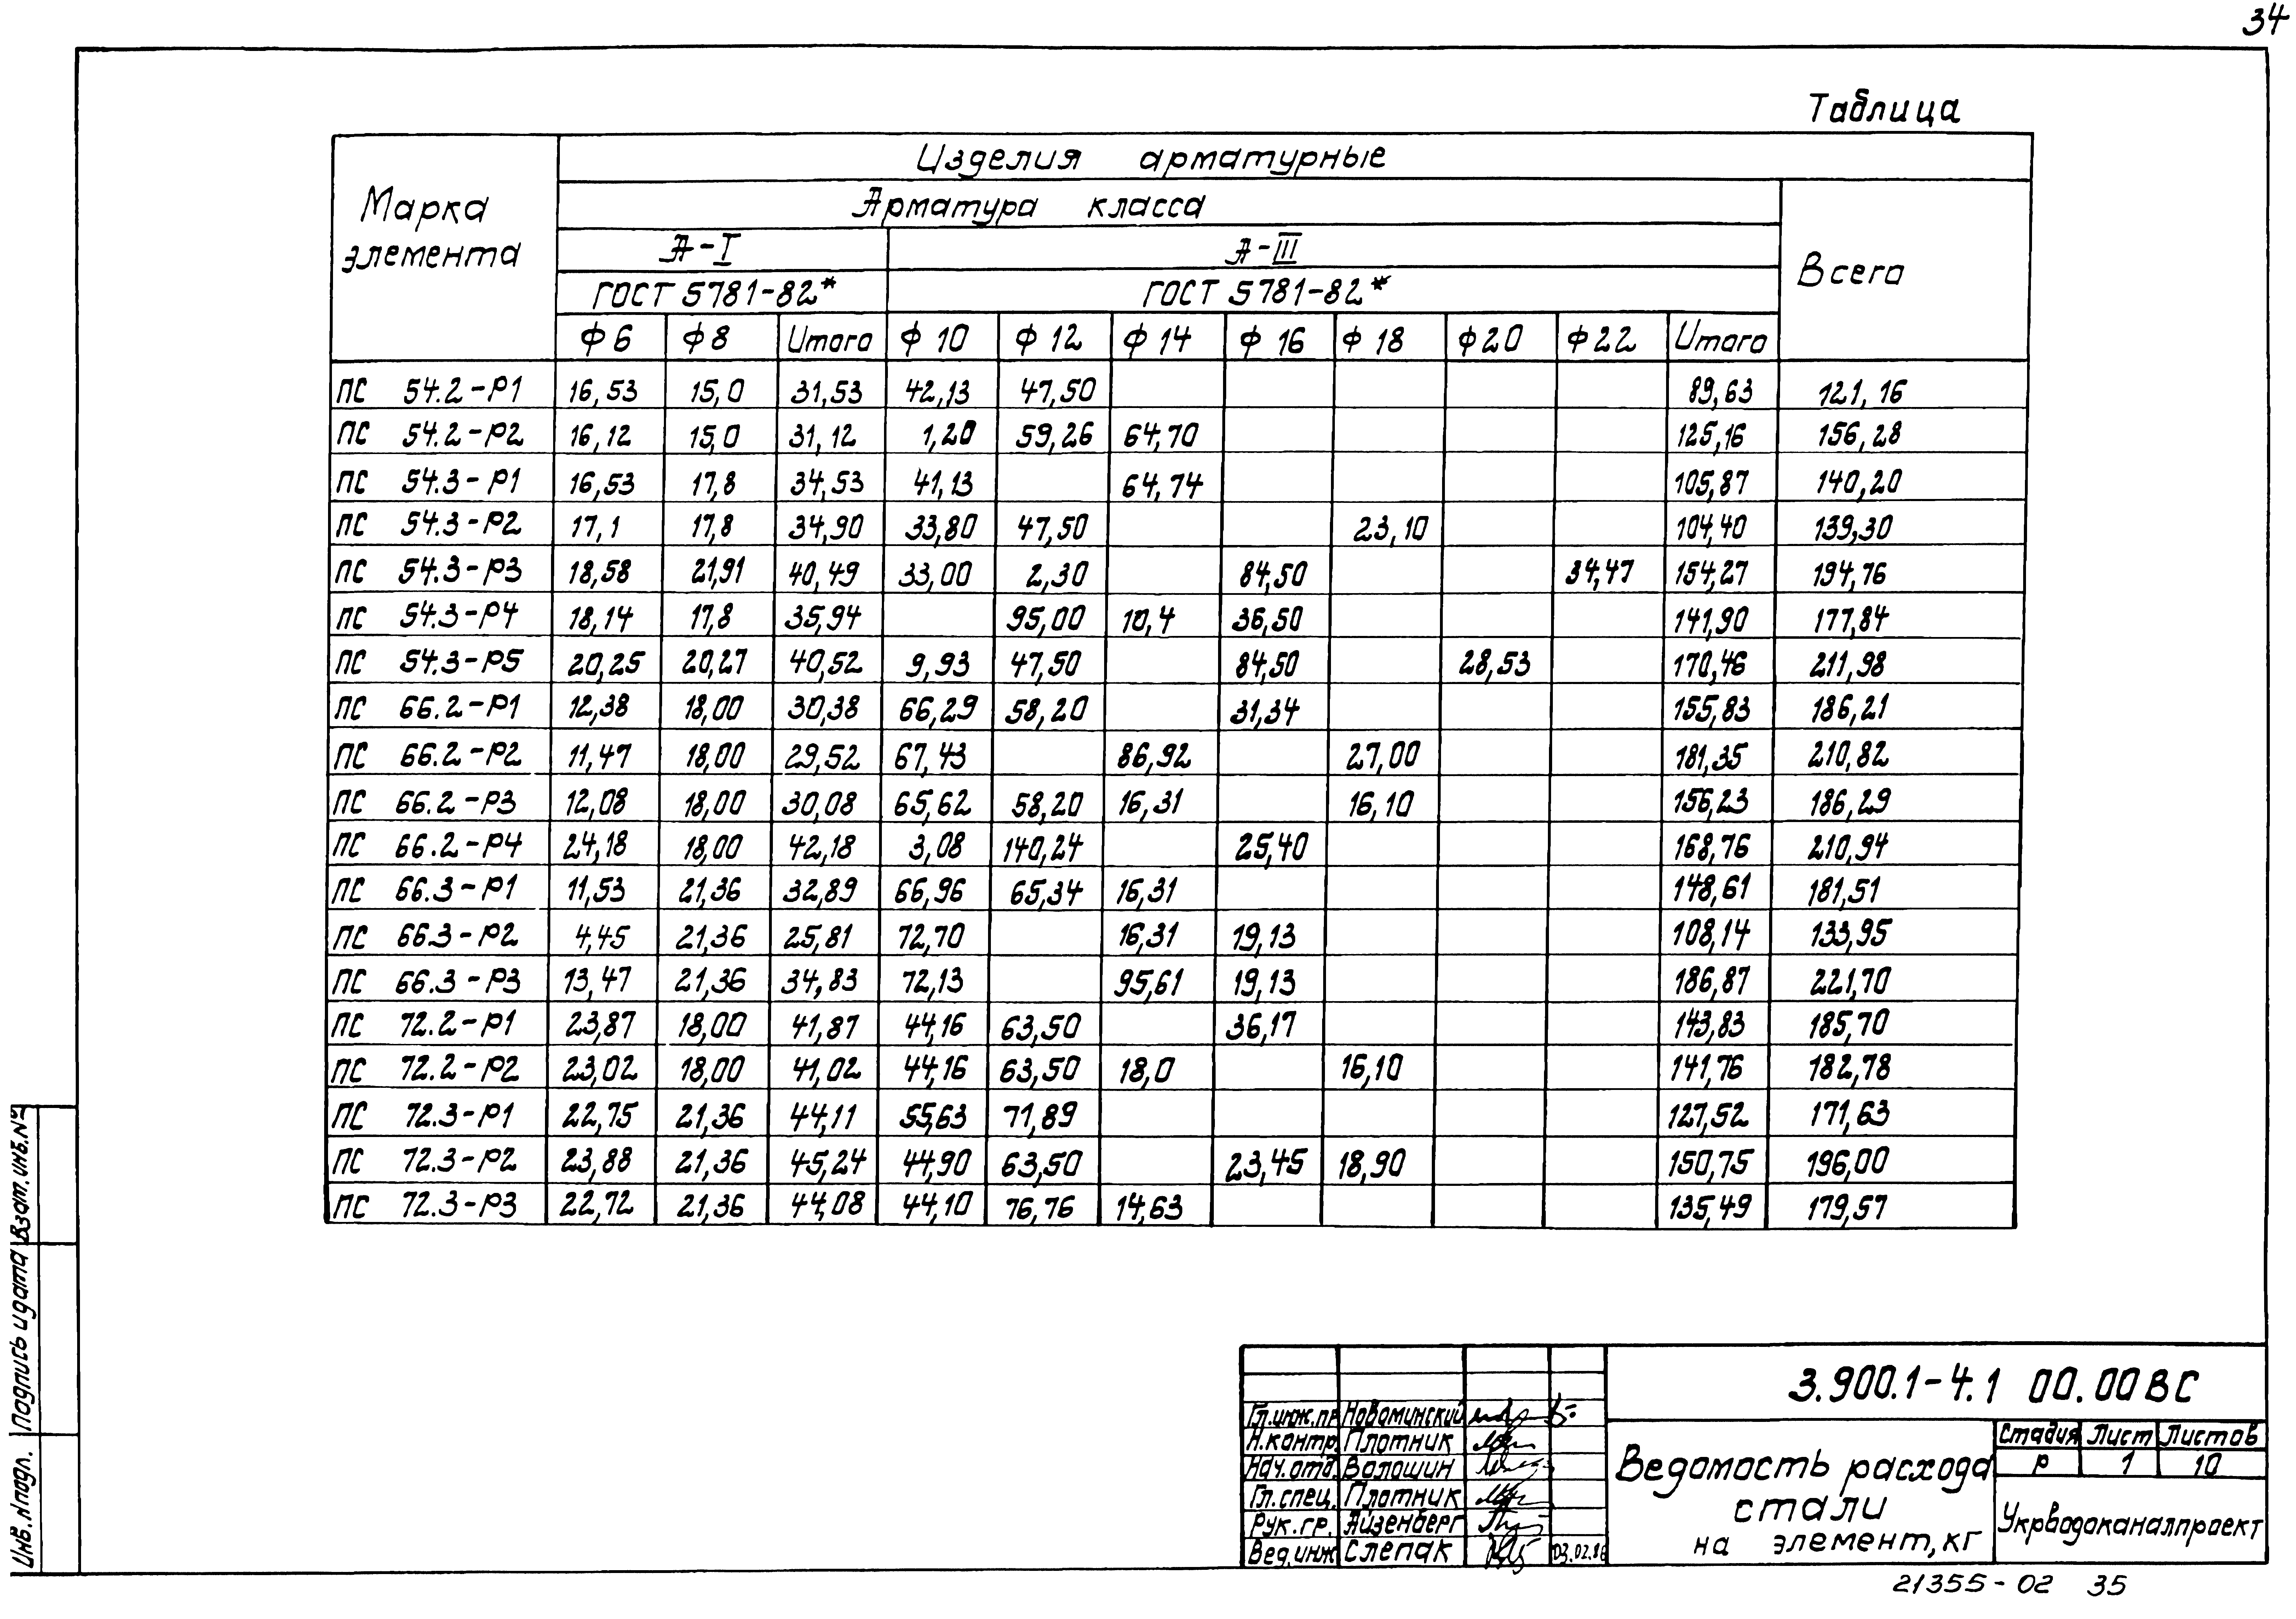 34
Таблица
Марка элемента
Изделия арматурные
Арматура класса
Всего
А-I
А-III
ГОСТ 5781-82*
ГОСТ 5781-82*
Ф6 Ф8 Итого Ф10 Ф12 Ф14 Ф16 Ф18 Ф20 Ф22 Итого
ПС 54.2-Р1 16,53 15,0 31,53 42,13 47,50 89,63 121,16
ПС 54.2-Р2 16,12 15,0 31,12 1,20 59,26 64,70 125,16 156,28
ПС 54.3-Р1 16,53 17,8 34,53 41,13 64,74 105,87 140,20
ПС 54.3-Р2 17,1 17,8 34,90 33,80 47,50 23,10 104,40 139,30
ПС 54.3-Р3 18,58 21,91 40,49 33,00 2,30 84,50 34,47 154,27 194,76
ПС 54.3-Р4 18,14 17,8 35,94 95,00 10,4 36,50 141,90 177,84
ПС 54.3-Р5 20,25 20,27 40,52 9,93 47,50 84,50 28,53 170,46 211,98
ПС 66.2-Р1 12,38 18,00 30,38 66,29 58,20 31,34 155,83 186,21
ПС 66.2-Р2 11,47 18,00 29,52 67,43 86,92 27,00 181,35 210,82
ПС 66.2-Р3 12,08 18,00 30,08 65,62 58,20 16,31 16,10 156,23 186,29
ПС 66.2-Р4 24,18 18,00 42,18 3,08 140,24 25,40 168,76 210,94
ПС 66.3-Р1 11,53 21,36 32,89 66,96 65,34 16,31 148,61 181,51
ПС 66.3-Р2 4,45 21,36 25,81 72,70 16,31 19,13 108,14 133,95
ПС 66.3-Р3 13,47 21,36 34,83 72,13 95,61 19,13 186,87 221,70
ПС 72.2-Р1 23,87 18,00 41,87 44,16 63,50 36,17 143,83 185,70
ПС 72.2-Р2 23,02 18,00 41,02 44,16 63,50 18,0 16,10 141,76 182,78
ПС 72.3-Р1 22,75 21,36 44,11 55,63 71,89 127,52 171,63
ПС 72.3-Р2 23,88 21,36 45,24 44,90 63,50 23,45 18,90 150,75 196,00
ПС 72.3-Р3 22,72 21,36 44,08 44,10 76,76 14,63 135,49 179,57
Инв.№подл. Подпись и дата Взам.инв.№
Гл.инж.пр Новоминский
Н.контр. Плотник
Нач.отд. Волошин
Гл.спец. Плотник
Рук.гр. Айзенберг
Вед.инж Слепак 03.02.86
3.900.1-4.1 00.00ВС
Ведомость расхода
стали
на элемент, кг
Стадия Лист Листов
Р 1 10
Укрводоканалпроект
21355-02 35